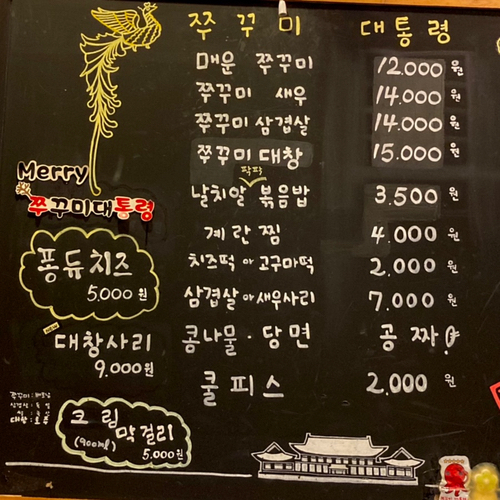 쭈꾸미 대통령
매운 쭈꾸미 12.000 원
쭈꾸미 새우 14.000 원
쭈꾸미 삼겹살 14.000 원
쭈꾸미 대창 15.000 원
팍팍
날치알 볶음밥 3.500 원
계란찜 4.000 원
치즈떡 or 고구마떡 2.000 원
삼겹살 or 새우사리 7.000 원
콩나물 · 당면 공짜!
쿨피스 2.000 원
Merry
쭈꾸미대통령
퐁듀치즈
5.000 원
new
대창사리
9.000 원
크림
막걸리
(900ml)
5.000 원